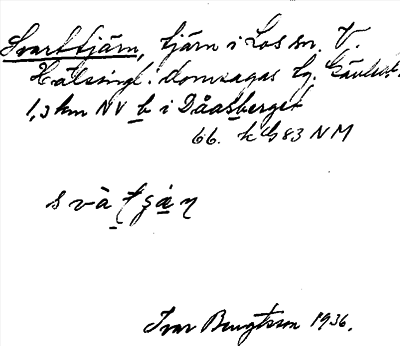 Svarttjärn, tjärn i Los sn. V.
Hälsingl. domsagas tg. Gävleb.
1,3 km NV b i Dåasberget
66. k G 83 NM
Ivar Bengtsson 1936.